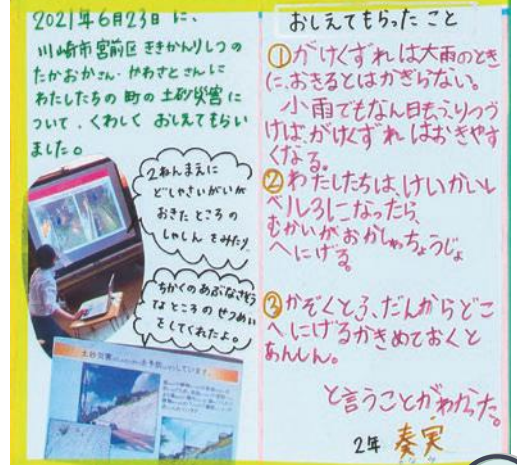 2021年6月23日に、
川崎市宮前区ききかんりしつの
たかおかさん・かわさとさんに
わたしたちの町の土砂災害に
ついて、くわしくおしえてもらい
ました。
2ねんまえに
どしゃさいがいが
おきたところの
しゃしんをみたり、
ちかくのあぶなそう
なところのせつめい
をしてくれたよ。
おしえてもらったこと
①がけくずれは大雨のとき
に、おきるとはかぎらない。
小雨でもなん日もふりつづ
けば、がけくずれはおきやす
くなる。
②わたしたちは、けいかいレ
ベル3になったら、
むかいがおかしゃちょうじょ
へにげる。
③かぞくとふだんからどこ
へにげるかきめておくと
あんしん。
と言うことがわかった。
2年 奏実